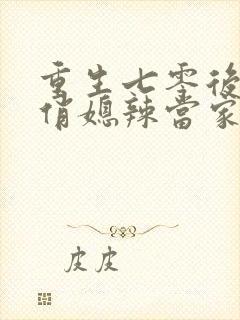 重生七零後
俏媳辣當家
皮皮